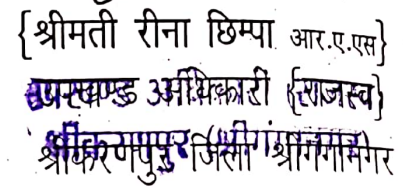 {श्रीमती रीना छिम्पा आर.ए.एस}
उपखण्ड अधिकारी {राजस्व}
श्रीकरणपुर जिला श्रीगंगानगर